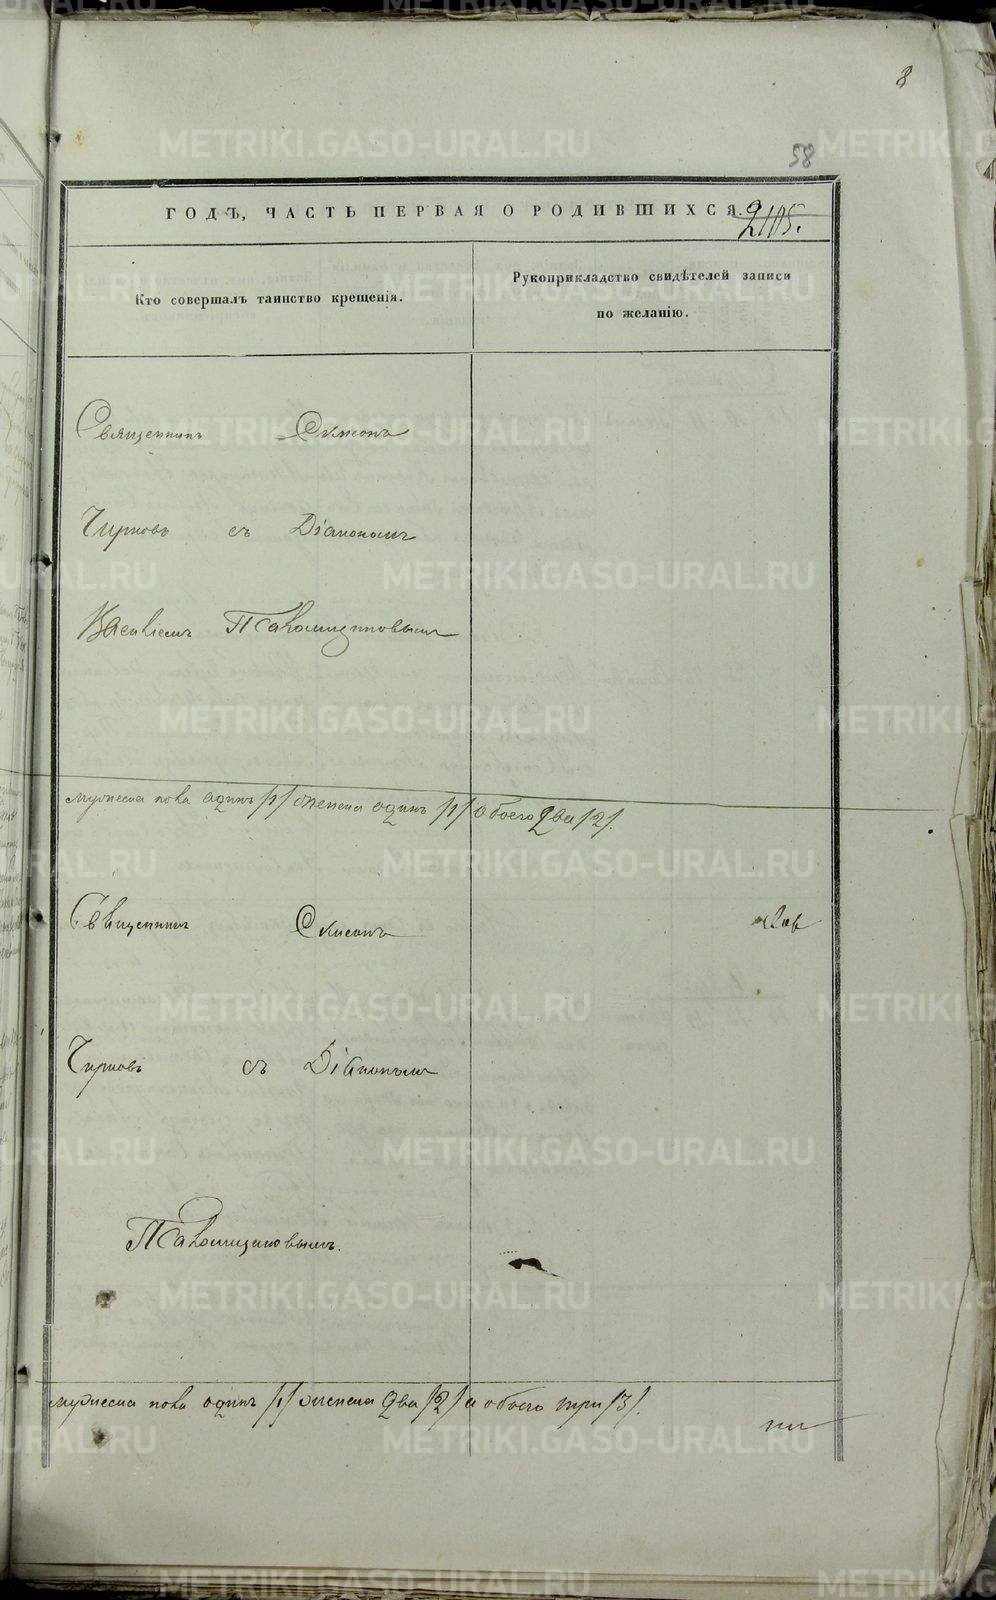 8
58
ГОДЪ, ЧАСТЬ ПЕРВАЯ О РОДИВШИХСЯ.
2105.
Кто совершалъ таинство крещенія.
Рукоприкладство свидѣтелей записи
по желанію.
Священникъ Симеонъ
съ Діакономъ
мужеска пола одинъ /1/ женска одинъ /1/ обоего два /2/.
Священникъ Симеонъ
съ Діакономъ
мужеска пола одинъ /1/ женска два /2/ а обоего три /3/.
METRIKI.GASO-URAL.RU